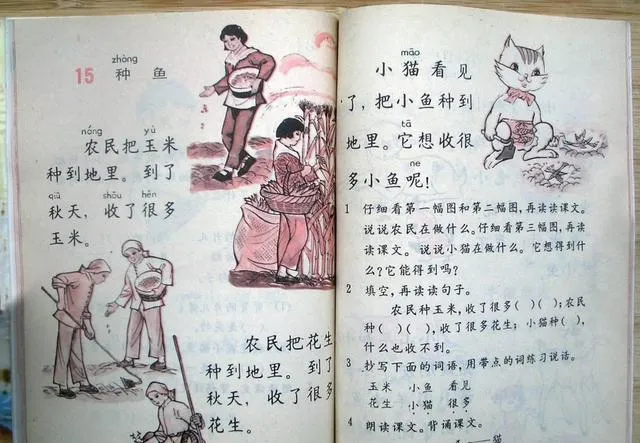 zhòng
15 种鱼
nóng yù
农民把玉米
种到地里。到了
qiū shōu hěn
秋天，收了很多
玉米。
农民把花生
种到地里。到了
秋天，收了很多
花生。
māo
小猫看见
了，把小鱼种到
tā
地里。它想收很
ne
多小鱼呢！
1 仔细看第一幅图和第二幅图，再读读课文。
说说农民在做什么。仔细看第三幅图，再读
读课文。说说小猫在做什么。它想得到什
么？它能得到吗？
2 填空，再读读句子。
农民种玉米，收了很多( )( )；农民
种( )( )，收了很多花生；小猫种( )，
什么也收不到。
3 抄写下面的词语，用带点的词练习说话。
玉米 小鱼 看见
花生 小猫 很多
4 朗读课文。背诵课文。
猫